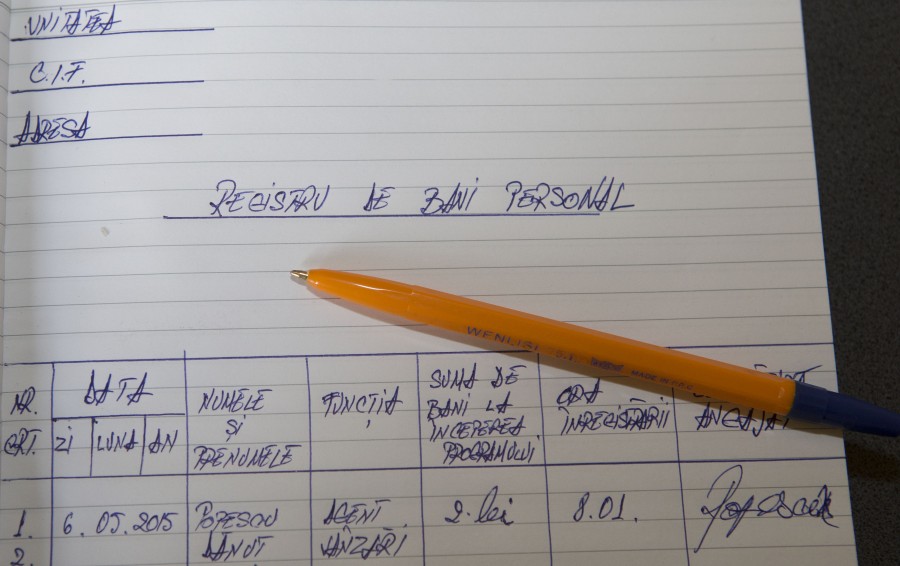 UNITATEA
C.I.F.
ADRESA
REGISTRU DE BANI PERSONAL
WENLISI
MADE IN P.R.C
NR. CRT.
DATA
ZI LUNA AN
NUMELE
ȘI
PRENUMELE
FUNCȚIA
SUMA DE
BANI LA
ÎNCEPEREA
PROGRAMULUI
ORA
ÎNREGISTRĂRII
ANGAJAT
1. 6. 05. 2015 POPESCU DĂNUȚ AGENT VÂNZĂRI 2. lei 8.01. Popescu
2.